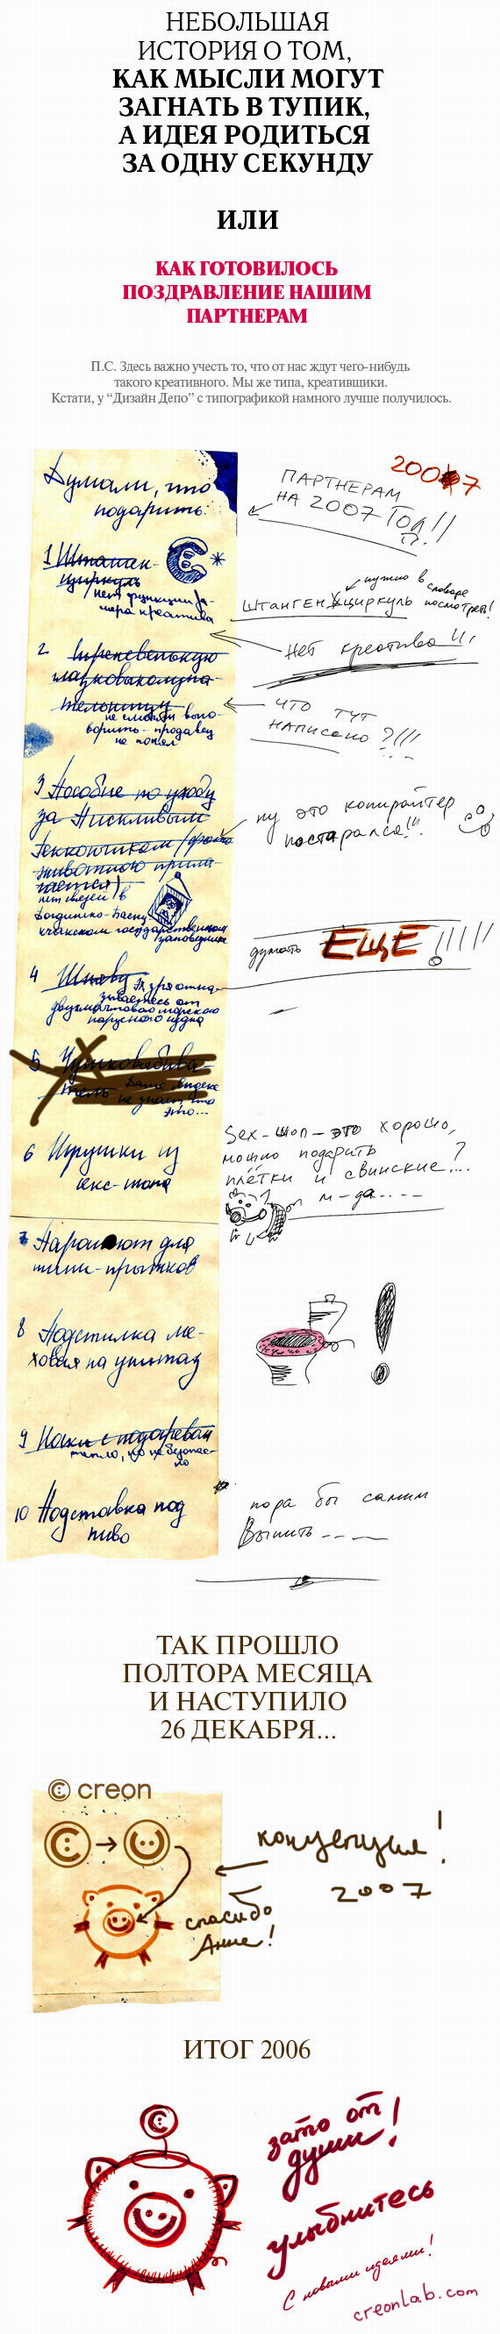 НЕБОЛЬШАЯ
ИСТОРИЯ О ТОМ,
КАК МЫСЛИ МОГУТ
ЗАГНАТЬ В ТУПИК,
А ИДЕЯ РОДИТЬСЯ
ЗА ОДНУ СЕКУНДУ
ИЛИ
КАК ГОТОВИЛОСЬ
ПОЗДРАВЛЕНИЕ НАШИМ
ПАРТНЕРАМ
П.С. Здесь важно учесть то, что от нас ждут чего-нибудь
такого креативного. Мы же типа, креативщики.
Кстати, у “Дизайн Депо” с типографикой намного лучше получилось.
Думали, что
подарить:
2007
ПАРТНЕРАМ
НА 2007 ГОД!!
1 Штанген-
циркуль
нет функции за-
мера креатива
нужно в словаре
посмотреть!
ШТАНГЕНЦИРКУЛЬ
Нет креатива!!!
2.
не смогли выго-
ворить - продавец
не понял
ЧТО ТУТ
НАПИСАНО ?!!!
3 Пособие по уходу
за Пискливым
Геккончиком (фото
животного прила-
гается)
нет связей в
государственном
заповеднике
ну это копирайтер
постарался!!
думать ЕЩЕ !!!!!
4 Шняву
двухмачтового морского
парусного судна
5
Даже яндекс
не знает что
это...
6 Игрушки из
секс-шопа
Sex-шоп - это хорошо,
можно подарить
плётки и свинские....?
м-да....
7 Парашют для
мини-прыжков
8 Подстилка ме-
ховая на унитаз
9 Носки с подогревом
тепло, но небезопас-
но
10 Подставка под
пиво
пора бы самим
Выпить----
ТАК ПРОШЛО
ПОЛТОРА МЕСЯЦА
И НАСТУПИЛО
26 ДЕКАБРЯ...
creon
концепция!
2007
спасибо
Анне!
ИТОГ 2006
зато от
души!
улыбнитесь
С новыми идеями!
creonlab.com